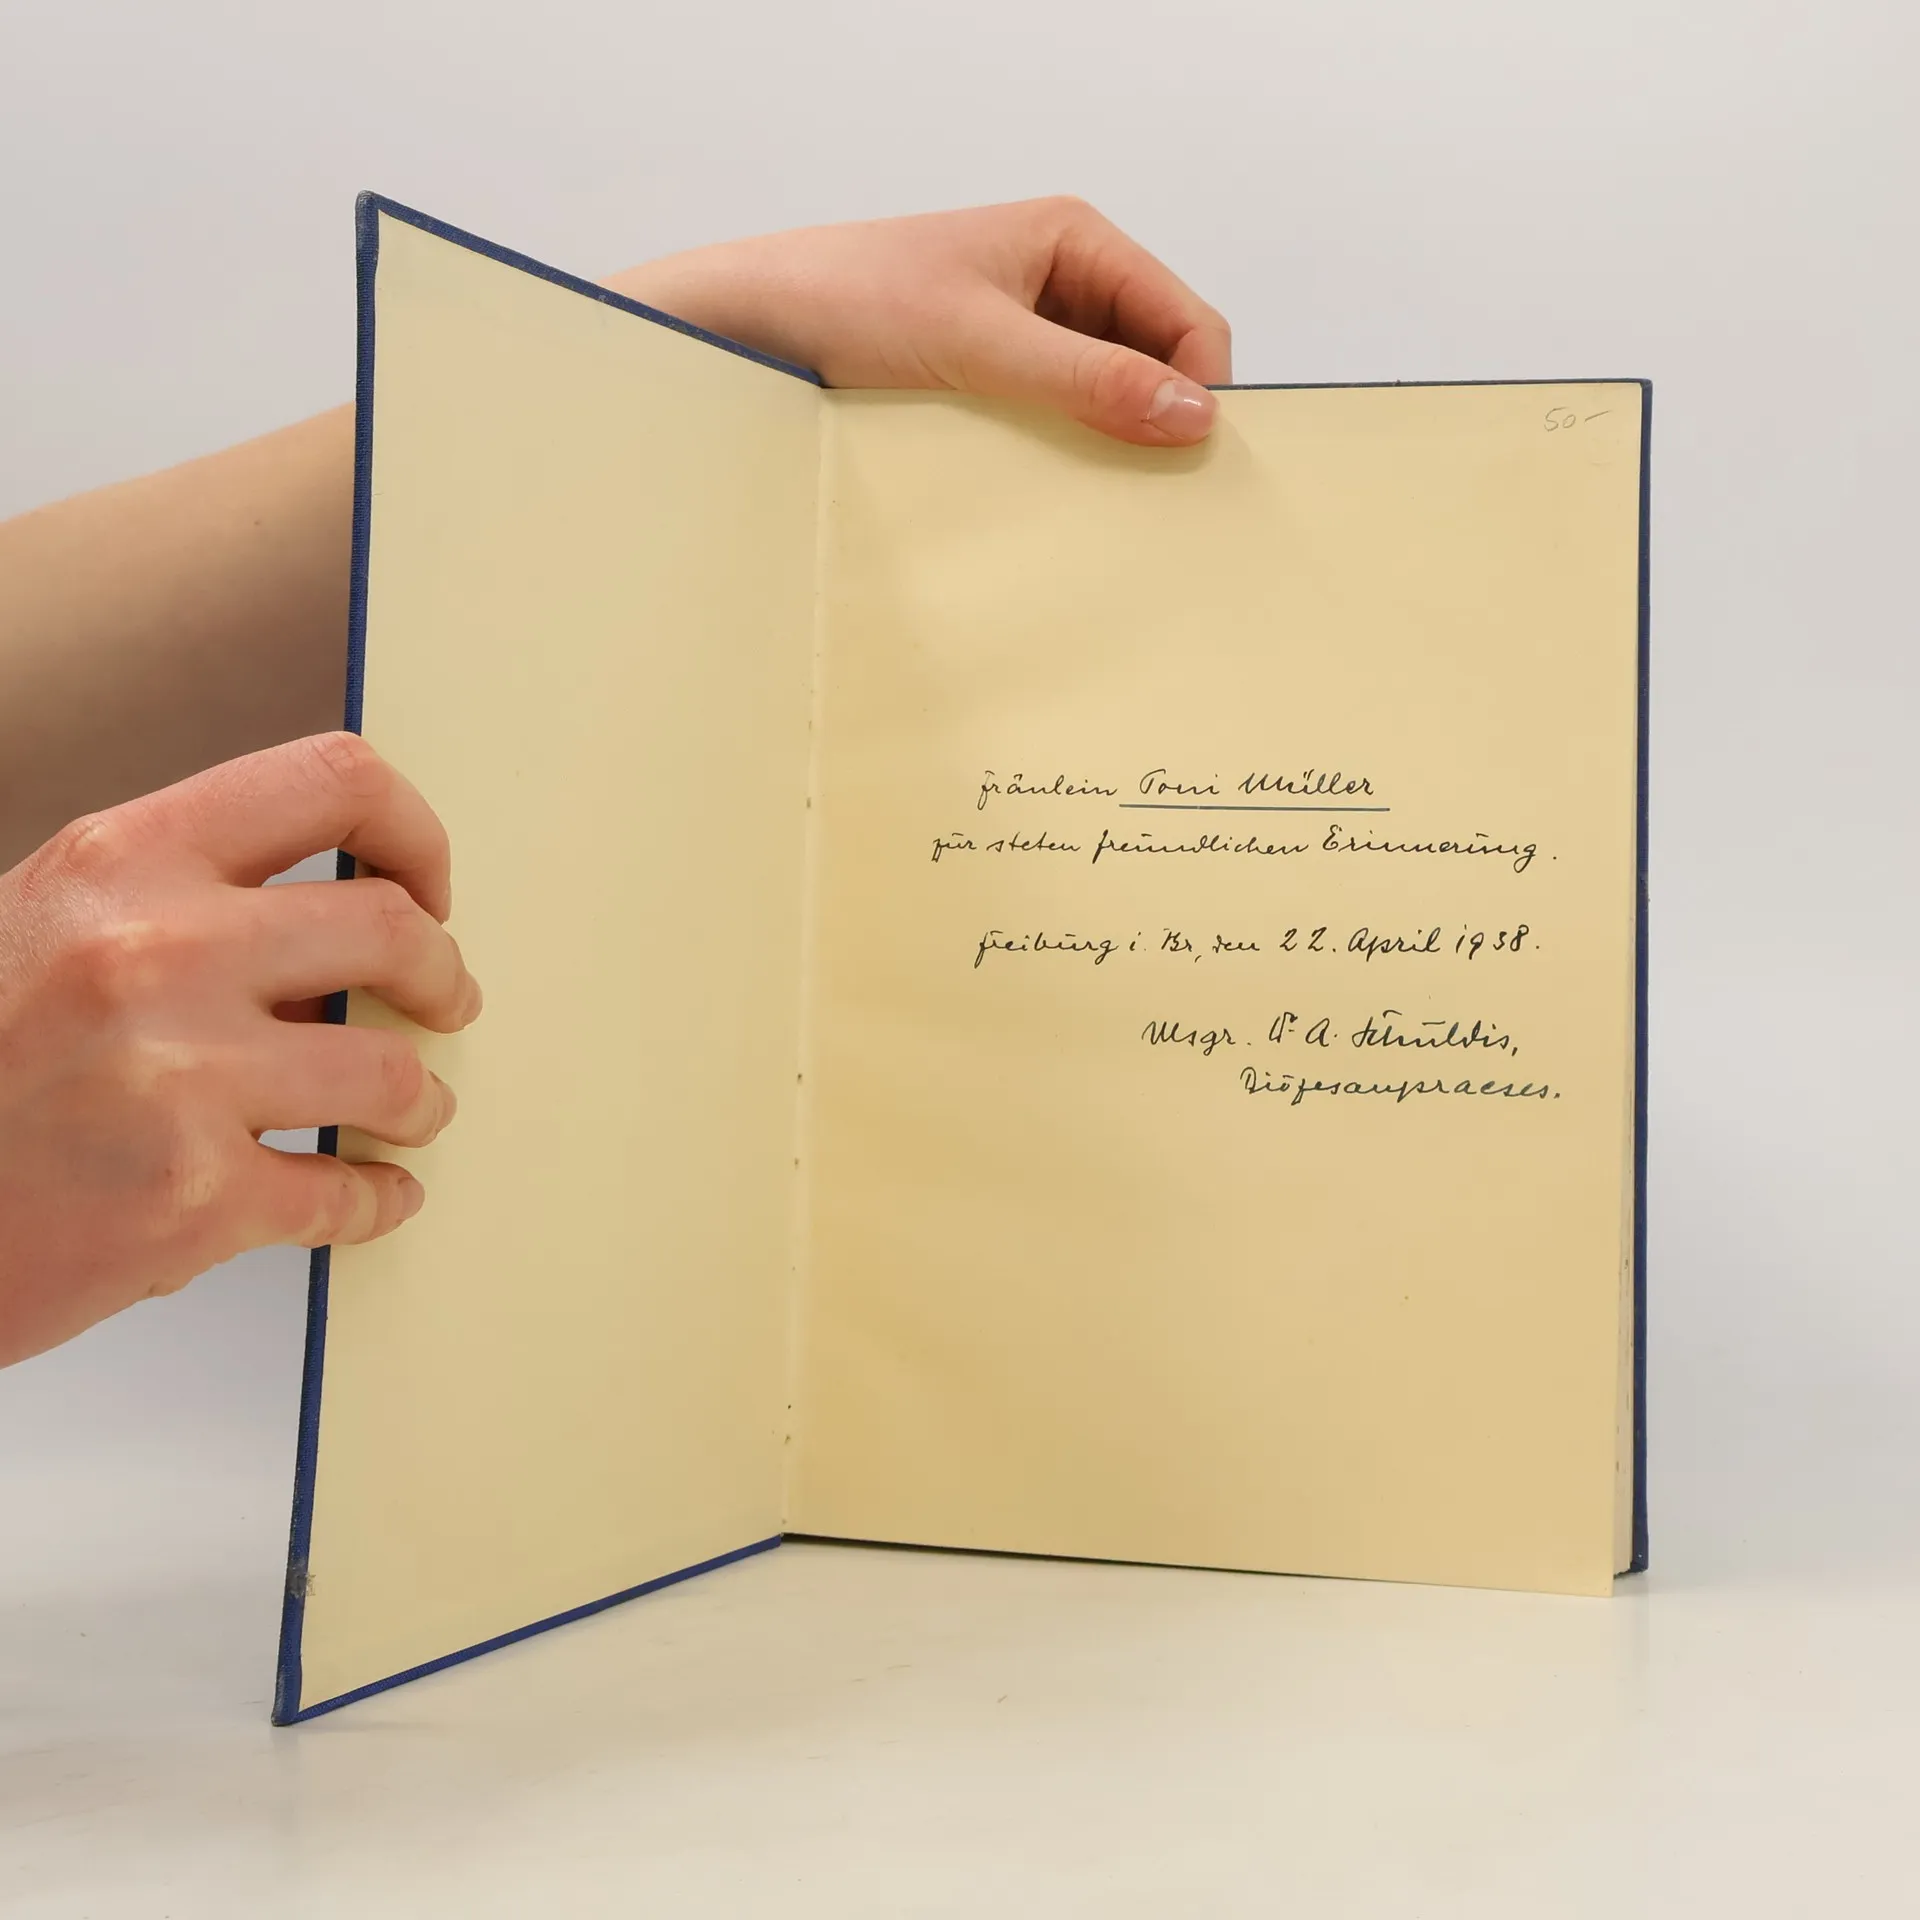 50-
Fräulein Toni Müller
zur steten freundlichen Erinnerung.
Freiburg i. Br, den 22. April 1938.
Msgr. Dr. A. Schuldis,
Diözesanpraeses.